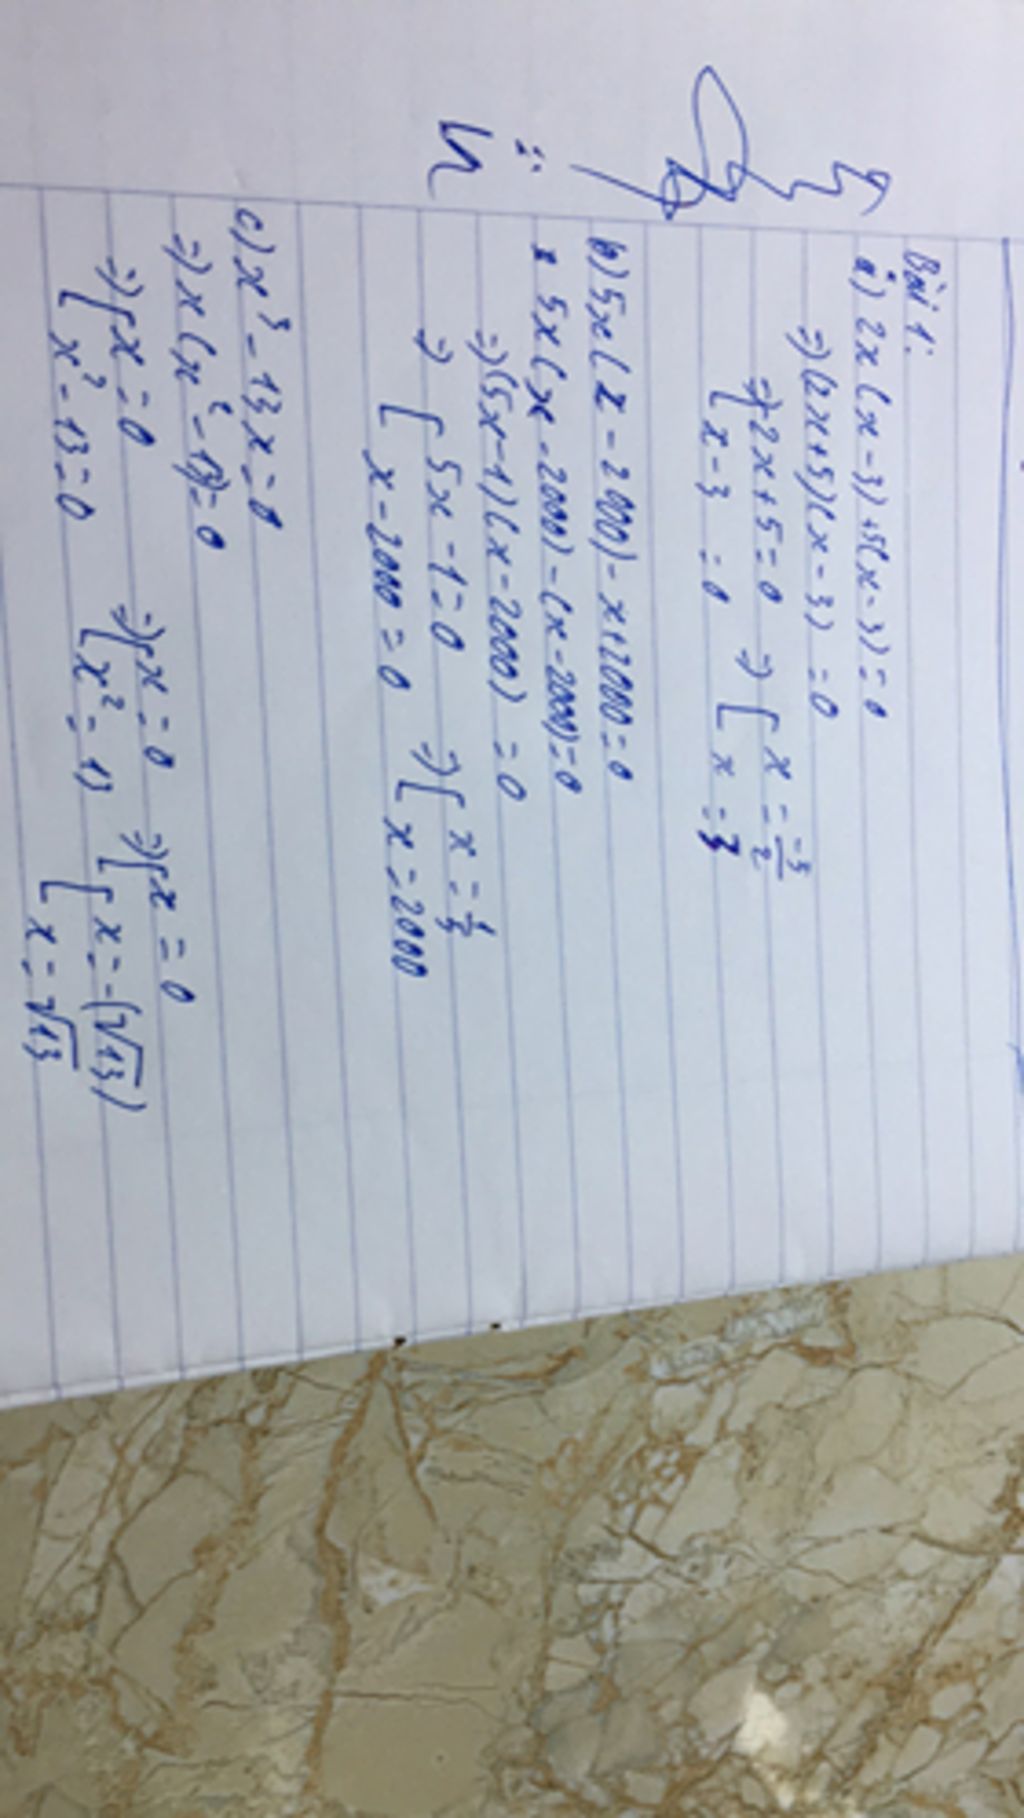 Bài 1:
a) 2x(x-3)+5(x-3)=0
=>(2x+5)(x-3)=0
=>[2x+5=0 => [x=-5/2
[x-3=0 [x=3
b) 5x(x-2000)-x+2000=0
5x(x-2000)-(x-2000)=0
=>(5x-1)(x-2000)=0
=> [5x-1=0 =>[x=1/5
[x-2000=0 [x=2000
c) x³-13x=0
=> x(x²-13)=0
=>[x=0 =>[x=0 =>[x=0
[x²-13=0 [x²=13 [x=-(√13)
[x=√13